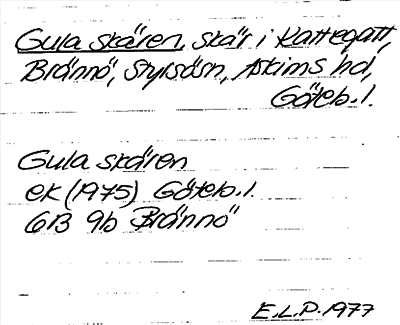 Gula skären, skär i Kattegatt,
Brännö, Styrsösn, Askims hd,
Göteb.l.
Gula skären
ek (1975) Göteb.l.
6B 9b Brännö
E.L.P. 1977